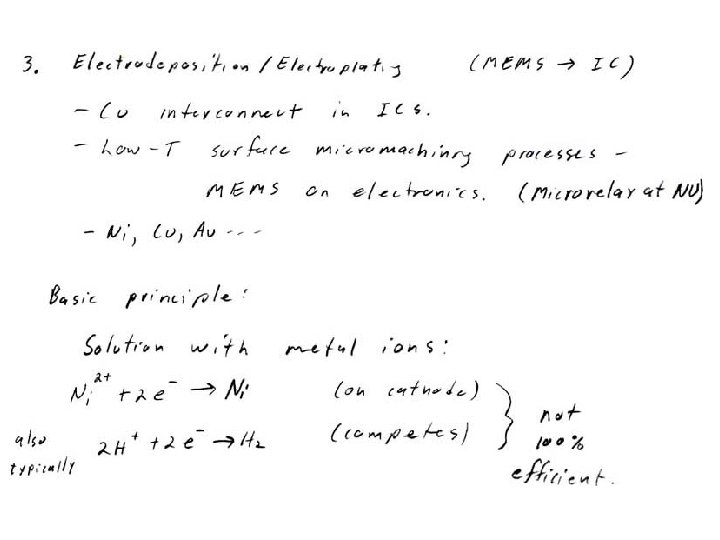 3. Electrodeposition / Electroplating (MEMS → IC)
- Cu interconnect in ICs.
- Low-T surface micromachining processes -
MEMS on electronics. (Microrelay at NU)
- Ni, Cu, Au ----
Basic principle:
Solution with metal ions:
Ni²⁺ + 2e⁻ → Ni (on cathode)
also typically 2H⁺ + 2e⁻ → H₂ (competes)
not 100% efficient.